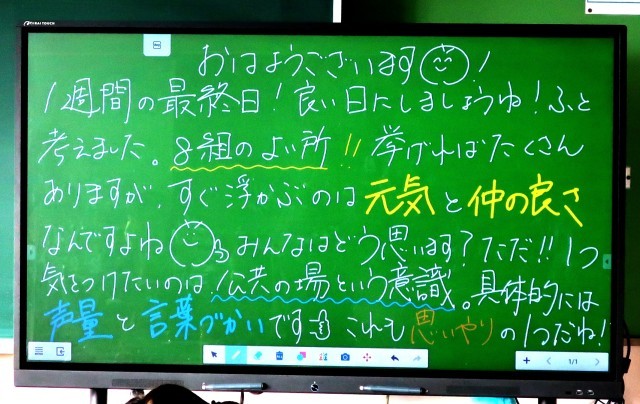 おはようございます!
1週間の最終日!良い日にしましょうね!ふと
考えました。8組のよい所!!挙げればたくさん
ありますが、すぐ浮かぶのは元気と仲の良さ
なんですよね みんなはどう思います?ただ!!1つ
気をつけたいのは、公共の場という意識。具体的には
声量と言葉づかいです これも思いやりの1つだね!
1/1